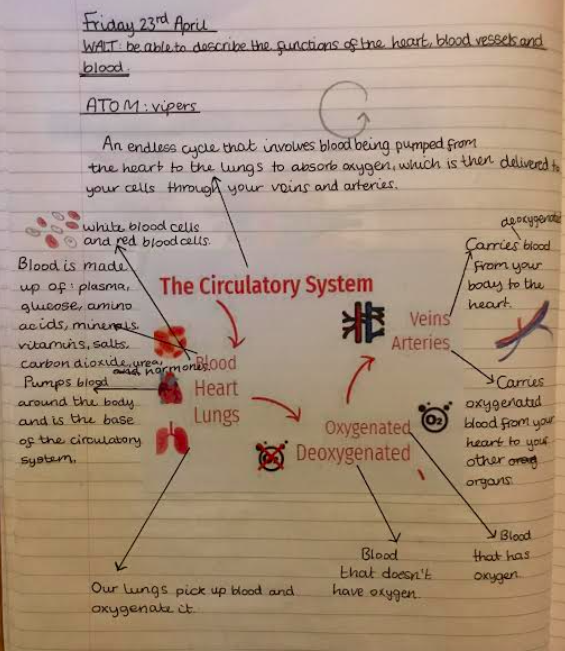 Friday 23rd April
WALT: be able to describe the functions of the heart, blood vessels and
blood.
ATOM: vipers
An endless cycle that involves blood being pumped from
the heart to the lungs to absorb oxygen, which is then delivered to
your cells through your veins and arteries.
white blood cells
and red blood cells.
Blood is made
up of: plasma,
glucose, amino
acids, minerals,
vitamins, salts,
carbon dioxide, urea,
and hormones.
Pumps blood
around the body
and is the base
of the circulatory
system.
The Circulatory System
Blood
Heart
Lungs
Veins
Arteries
Oxygenated
Deoxygenated
O2
O2
deoxygenated
Carries blood
from your
body to the
heart.
Carries
oxygenated
blood from your
heart to your
other
organs.
Our lungs pick up blood and
oxygenate it.
Blood
that doesn't
have oxygen
Blood
that has
oxygen